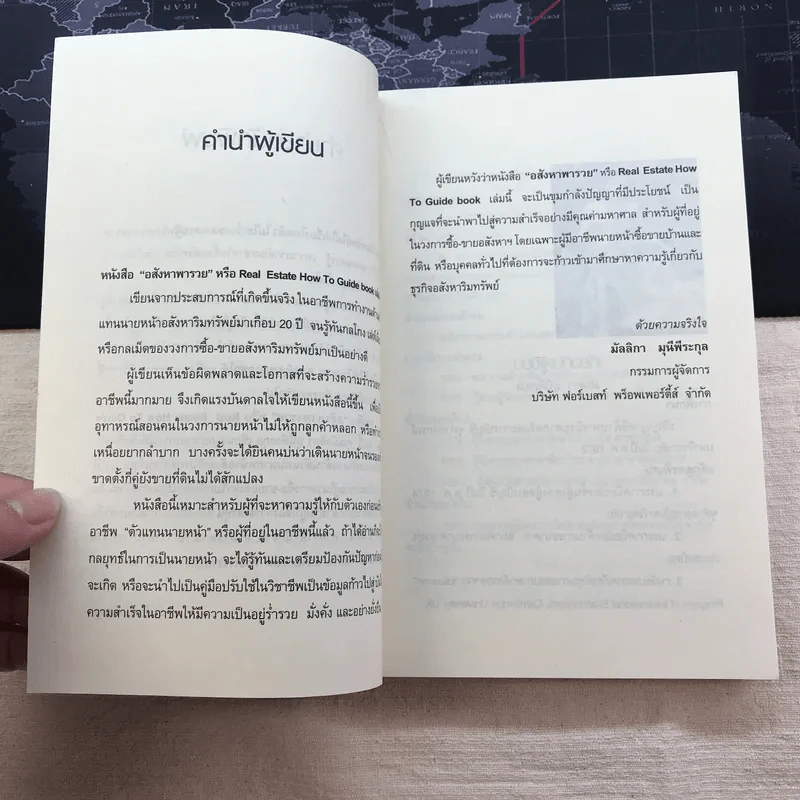 คำนำผู้เขียน
หนังสือ “อสังหาพารวย” หรือ Real Estate How To Guide book
เขียนจากประสบการณ์ที่เกิดขึ้นจริง ในอาชีพการทำงานด้าน
แทนนายหน้าอสังหาริมทรัพย์มาเกือบ 20 ปี จนรู้ทันกลโกง
หรือกลเม็ดของวงการซื้อ-ขายอสังหาริมทรัพย์มาเป็นอย่างดี
ผู้เขียนเห็นข้อผิดพลาดและโอกาสที่จะสร้างความร่ำรวย
อาชีพนี้มากมาย จึงเกิดแรงบันดาลใจให้เขียนหนังสือนี้ขึ้น
อุทาหรณ์สอนคนในวงการนายหน้าไม่ให้ถูกลูกค้าหลอก
เหนื่อยยากลำบาก บางครั้งจะได้ยินคนบ่นว่าเดินนายหน้าจนรองเท้า
ขาดตั้งกี่คู่ยังขายที่ดินไม่ได้สักแปลง
หนังสือนี้เหมาะสำหรับผู้ที่จะหาความรู้ให้กับตัวเองก่อน
อาชีพ “ตัวแทนนายหน้า” หรือผู้ที่อยู่ในอาชีพนี้แล้ว ถ้าได้อ่าน
กลยุทธ์ในการเป็นนายหน้า จะได้รู้ทันและเตรียมป้องกันปัญหาก่อน
จะเกิด หรือจะนำไปเป็นคู่มือปรับใช้ในวิชาชีพเป็นข้อมูลก้าวไปสู่
ความสำเร็จในอาชีพให้มีความเป็นอยู่ร่ำรวย มั่งคั่ง และอย่างยั่งยืน
ผู้เขียนหวังว่าหนังสือ “อสังหาพารวย” หรือ Real Estate How
To Guide book เล่มนี้ จะเป็นขุมกำลังปัญญาที่มีประโยชน์ เป็น
กุญแจที่จะนำพาไปสู่ความสำเร็จอย่างมีคุณค่ามหาศาล สำหรับผู้ที่อยู่
ในวงการซื้อ-ขายอสังหาฯ โดยเฉพาะผู้มีอาชีพนายหน้าซื้อขายบ้านและ
ที่ดิน หรือบุคคลทั่วไปที่ต้องการจะก้าวเข้ามาศึกษาหาความรู้เกี่ยวกับ
ธุรกิจอสังหาริมทรัพย์
ด้วยความจริงใจ
มัลลิกา มุนีพีระกุล
กรรมการผู้จัดการ
บริษัท ฟอร์เบสท์ พร็อพเพอร์ตี้ส์ จำกัด